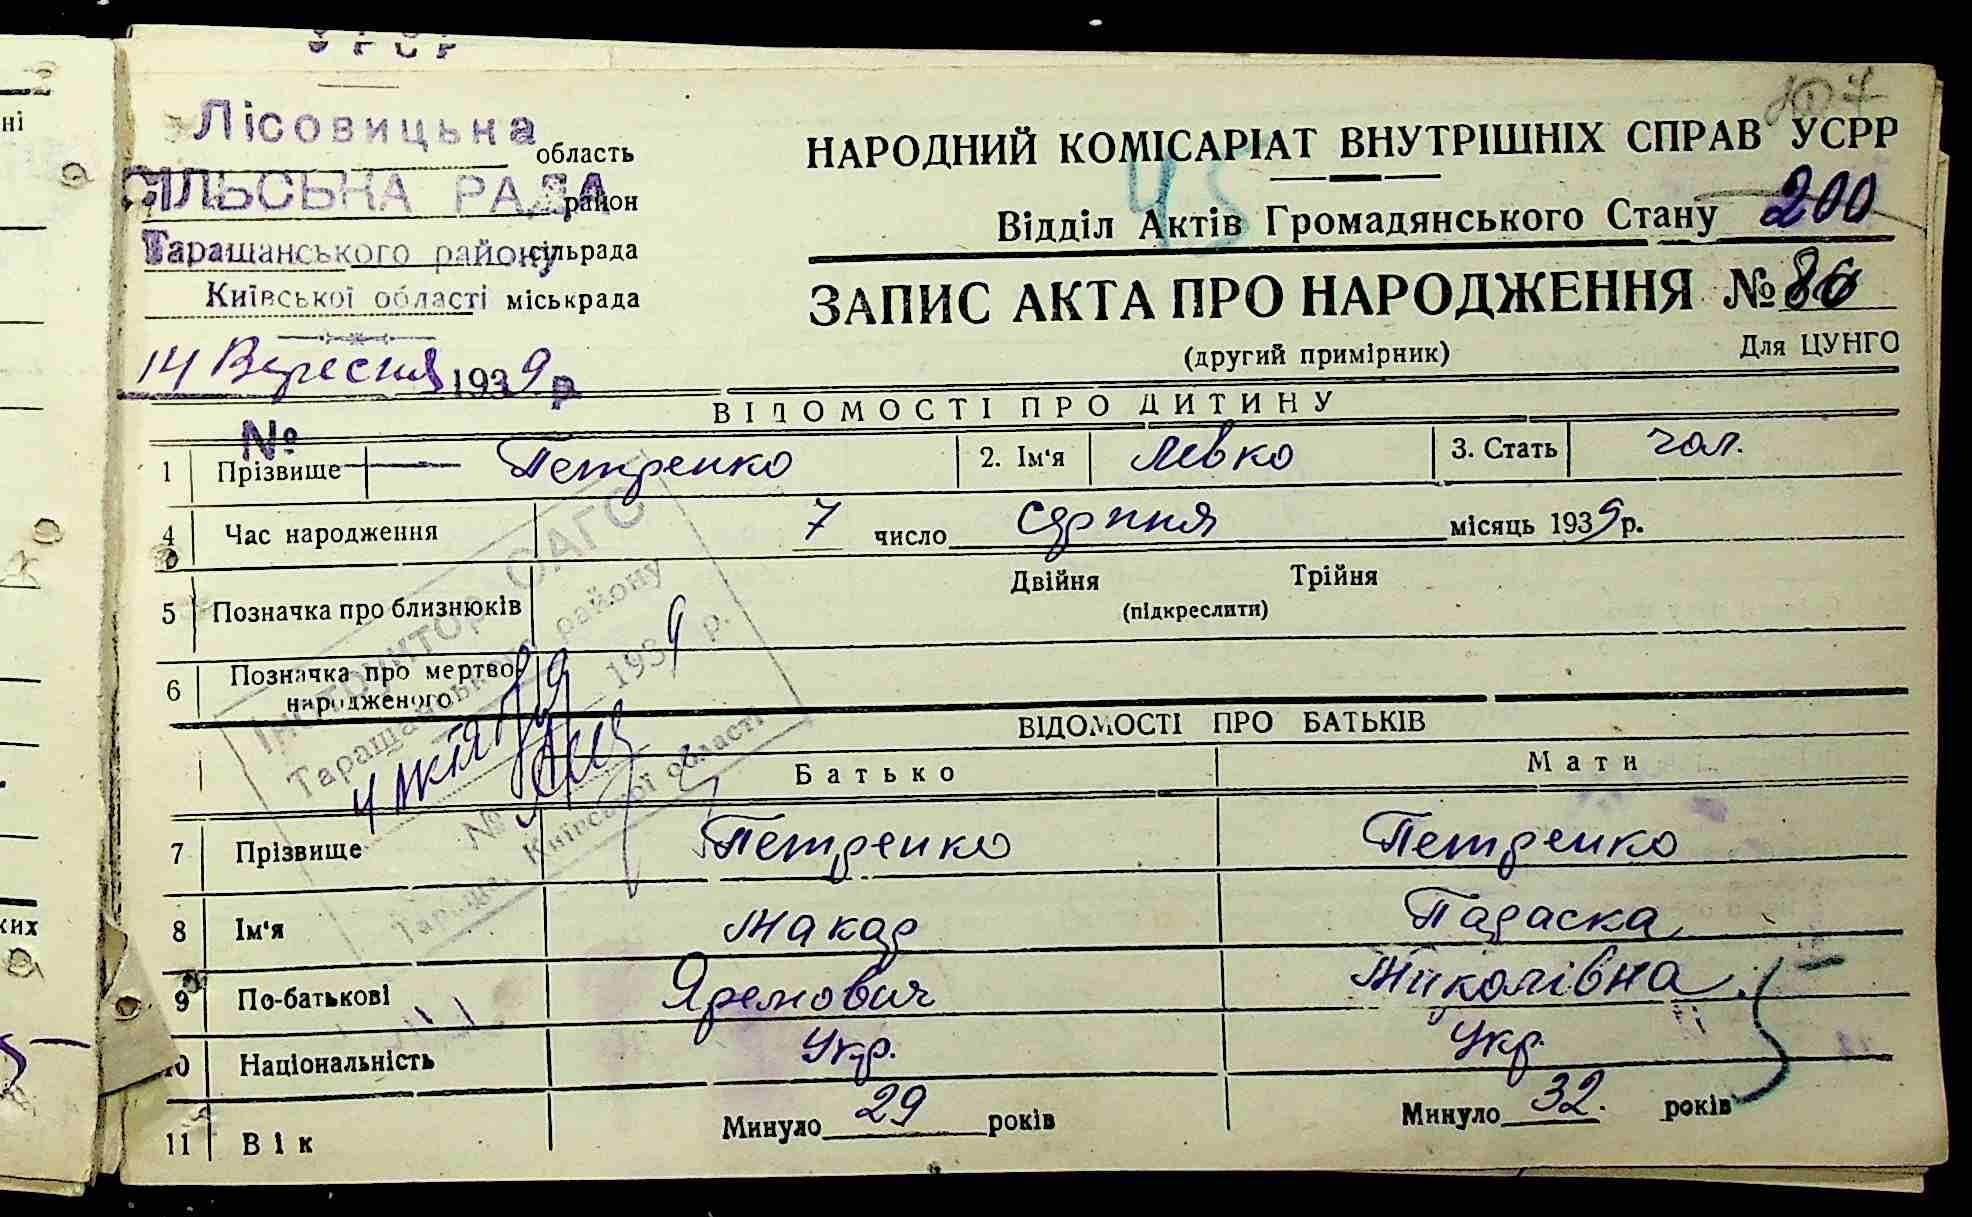 УРСР
Лісовицька область
СІЛЬСЬКА РАДА район
Таращанського району сільрада
Київської області міськрада
14 Вересня 1939 р.
№
НАРОДНИЙ КОМІСАРІАТ ВНУТРІШНІХ СПРАВ УСРР
45
Відділ Актів Громадянського Стану 200
ЗАПИС АКТА ПРО НАРОДЖЕННЯ № 86
(другий примірник) Для ЦУНГО
ВІДОМОСТІ ПРО ДИТИНУ
1 Прізвище Петренко 2. Ім'я Левко 3. Стать чол.
4 Час народження 7 число серпня місяць 1939 р.
5 Позначка про близнюків Двійня Трійня
(підкреслити)
6 Позначка про мертво
народженого
Інструктор ОАГС
Таращанського району
4 жктя 1939 р.
№
Київської області
ВІДОМОСТІ ПРО БАТЬКІВ
Батько Мати
7 Прізвище Петренко Петренко
8 Ім'я Макар Параска
9 По-батькові Яремович Миколівна
10 Національність Укр. Укр.
11 Вік Минуло 29 років Минуло 32. років
ні
ких